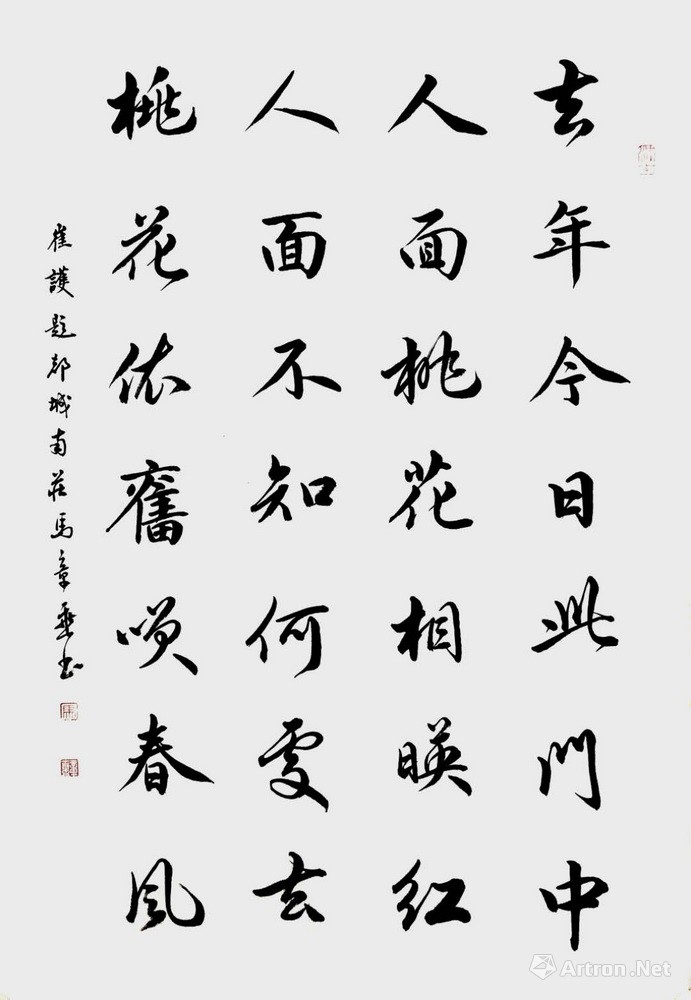 去年今日此門中
人面桃花相暎红
人面不知何處去
桃花依舊咲春風
崔護題都城南莊馬章乘書
Artron.Net